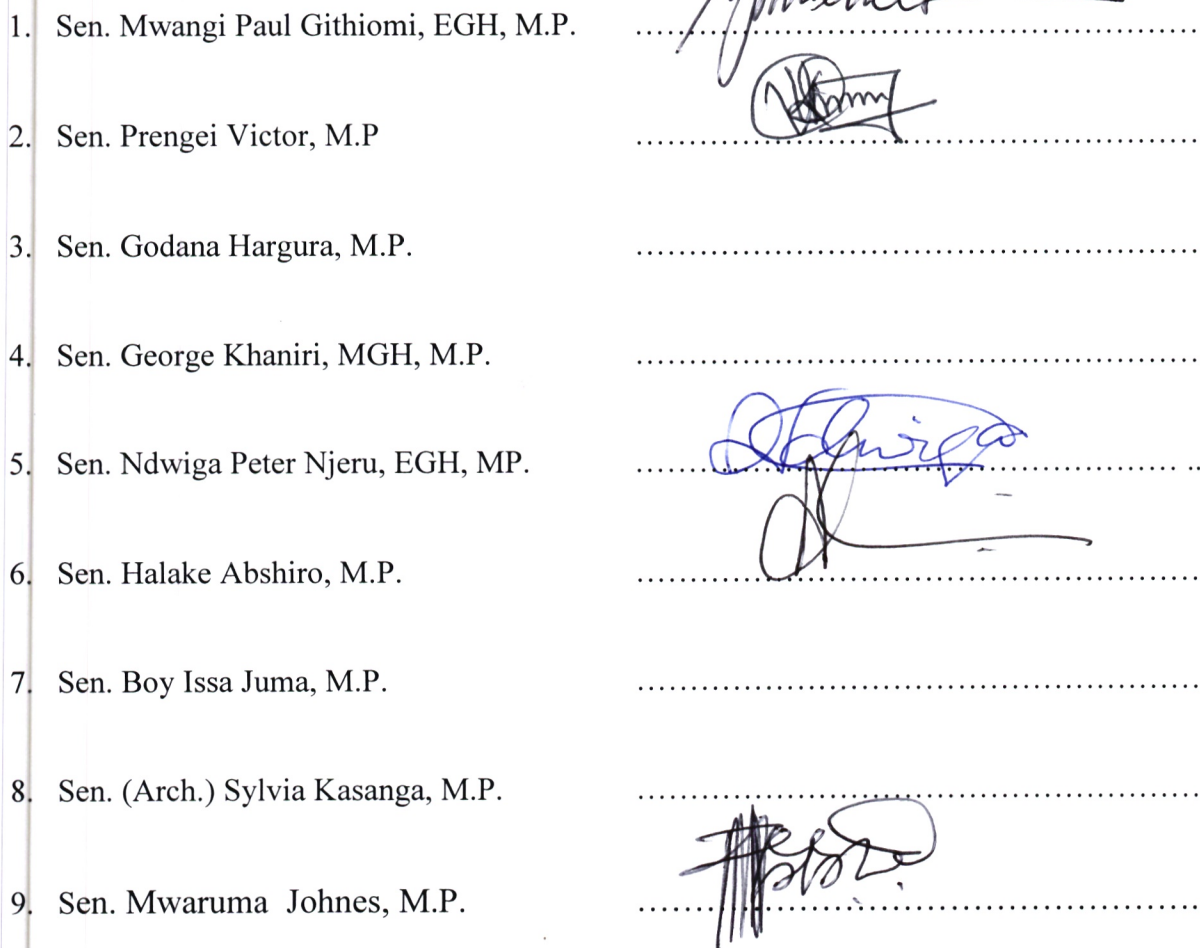 1. Sen. Mwangi Paul Githiomi, EGH, M.P.
2. Sen. Prengei Victor, M.P
3. Sen. Godana Hargura, M.P.
4. Sen. George Khaniri, MGH, M.P.
5. Sen. Ndwiga Peter Njeru, EGH, MP.
6. Sen. Halake Abshiro, M.P.
7. Sen. Boy Issa Juma, M.P.
8. Sen. (Arch.) Sylvia Kasanga, M.P.
9. Sen. Mwaruma Johnes, M.P.